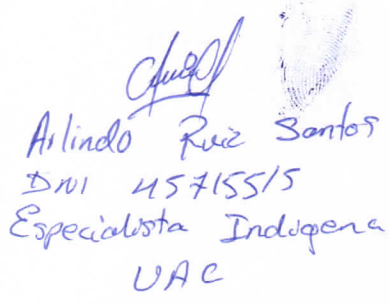 Arlindo Ruiz Santos
DNI 45715515
Especialista Indigena
UAC